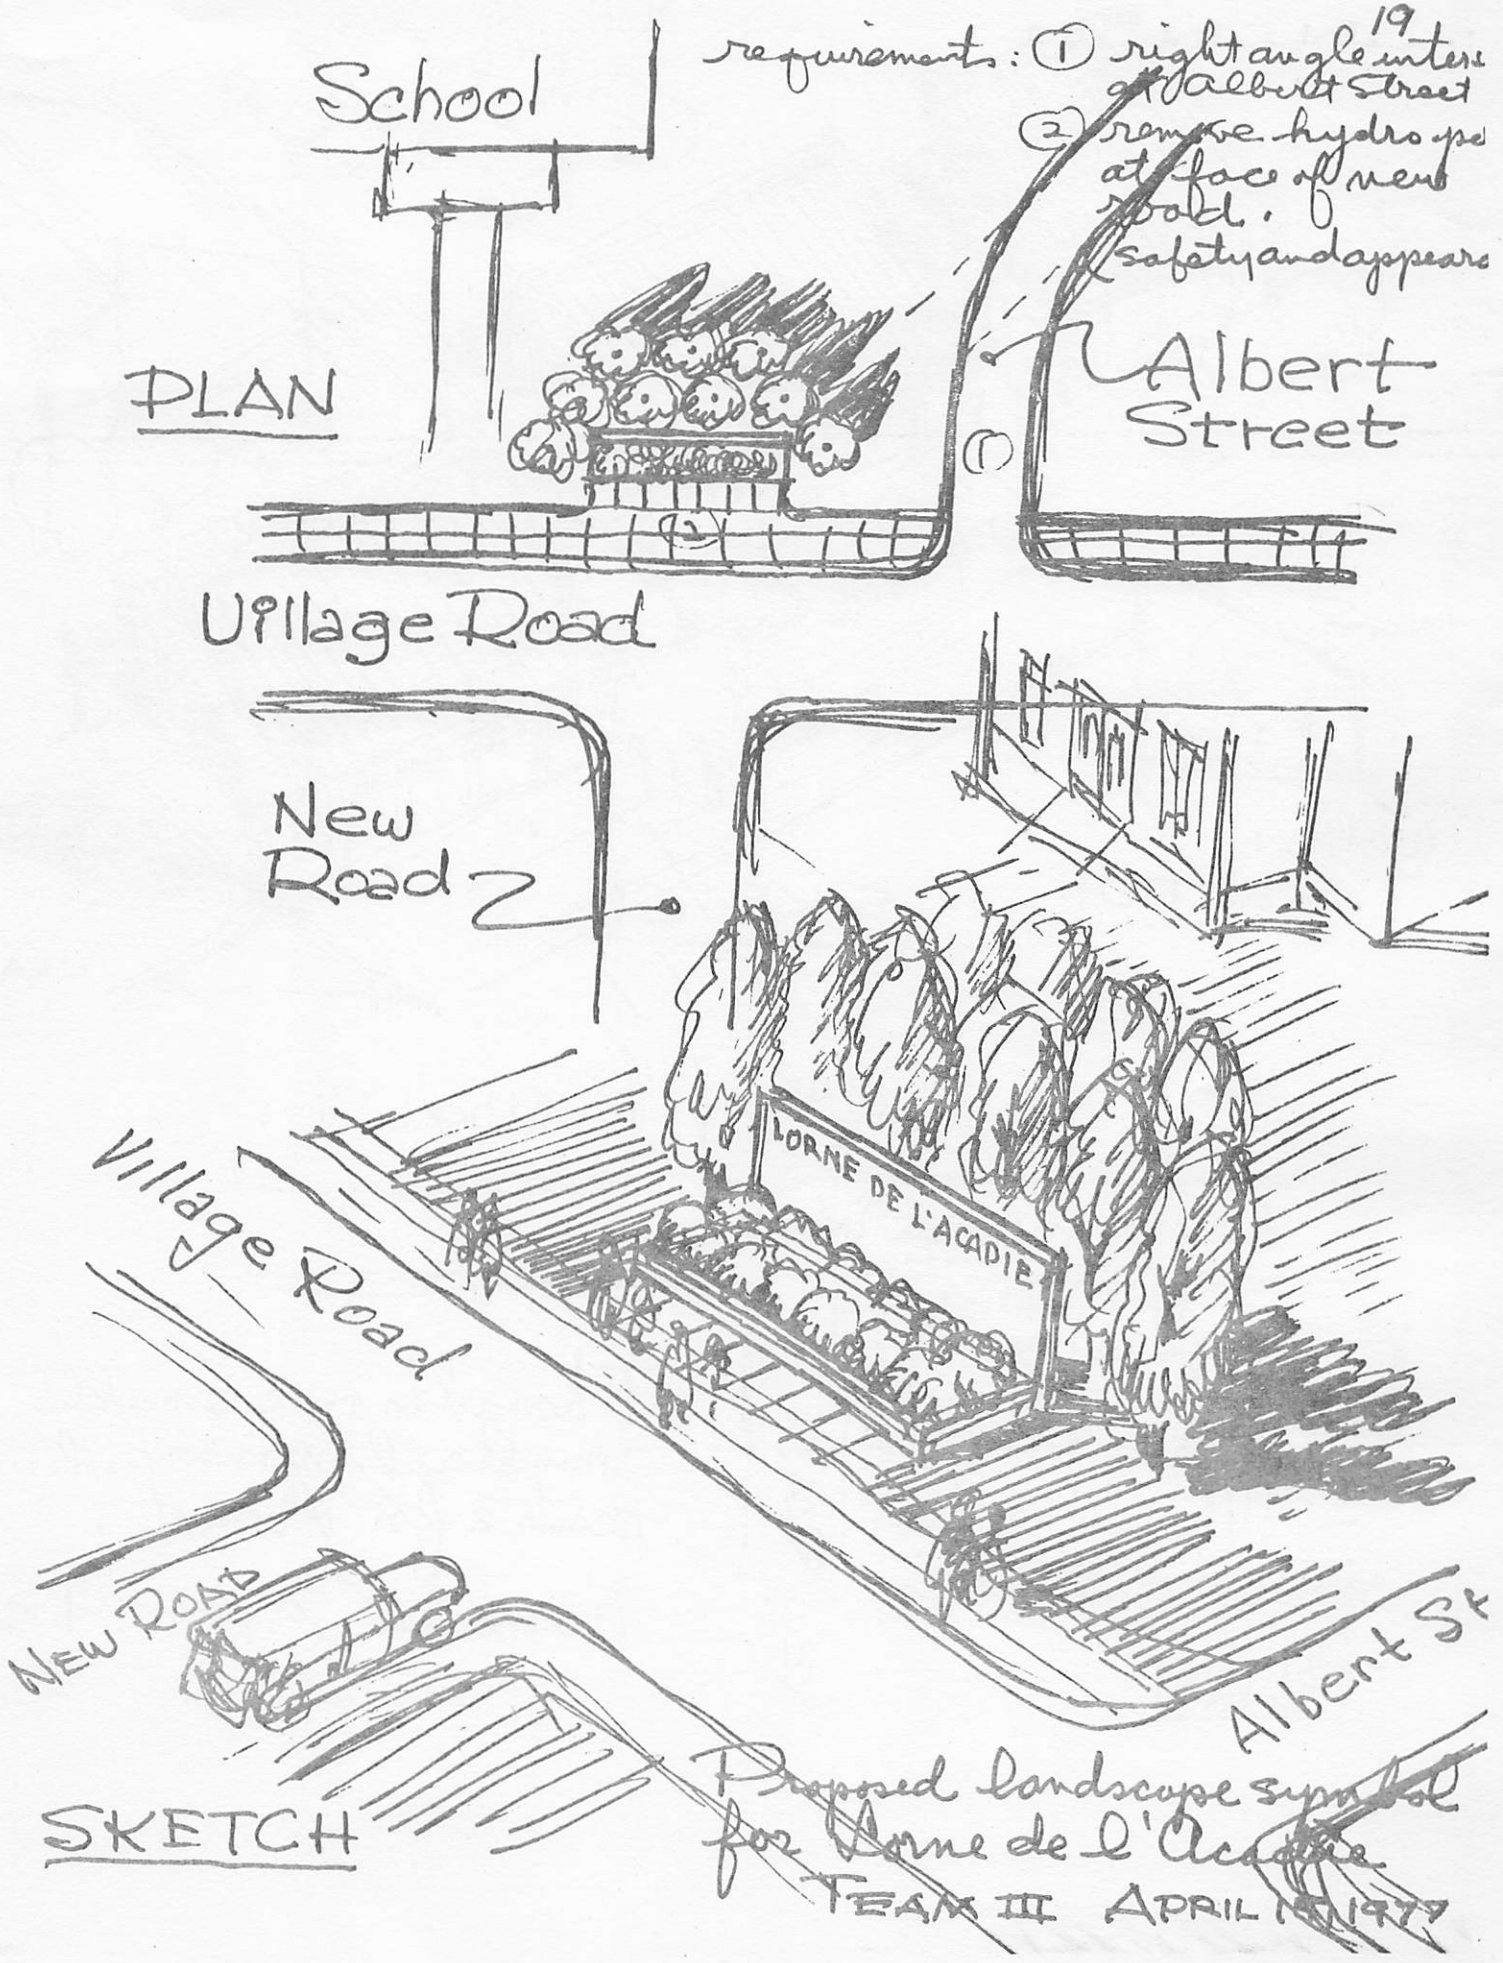 19
requirements: ① right angle inters
at Albert Street
② remove hydro po
at face of new
road.
safety and appeara
School
PLAN
Albert
Street
1
2
Village Road
New
Road
LORNE DE L'ACADIE
Village Road
NEW ROAD
Albert St
SKETCH
Proposed landscape symbol
for Lorne de l'Acadie
TEAM III APRIL 1977